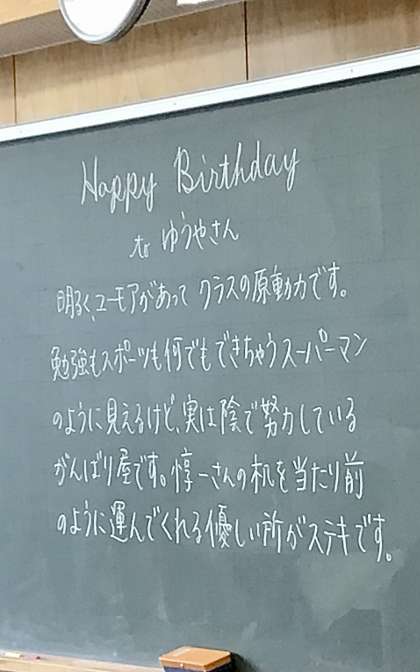 Happy Birthday
to ゆうやさん
明るく、ユーモアがあって クラスの原動力です。
勉強もスポーツも何でもできちゃうスーパーマン
のように見えるけど、実は陰で努力している
がんばり屋です。惇一さんの机を当たり前
のように運んでくれる優しい所がステキです。